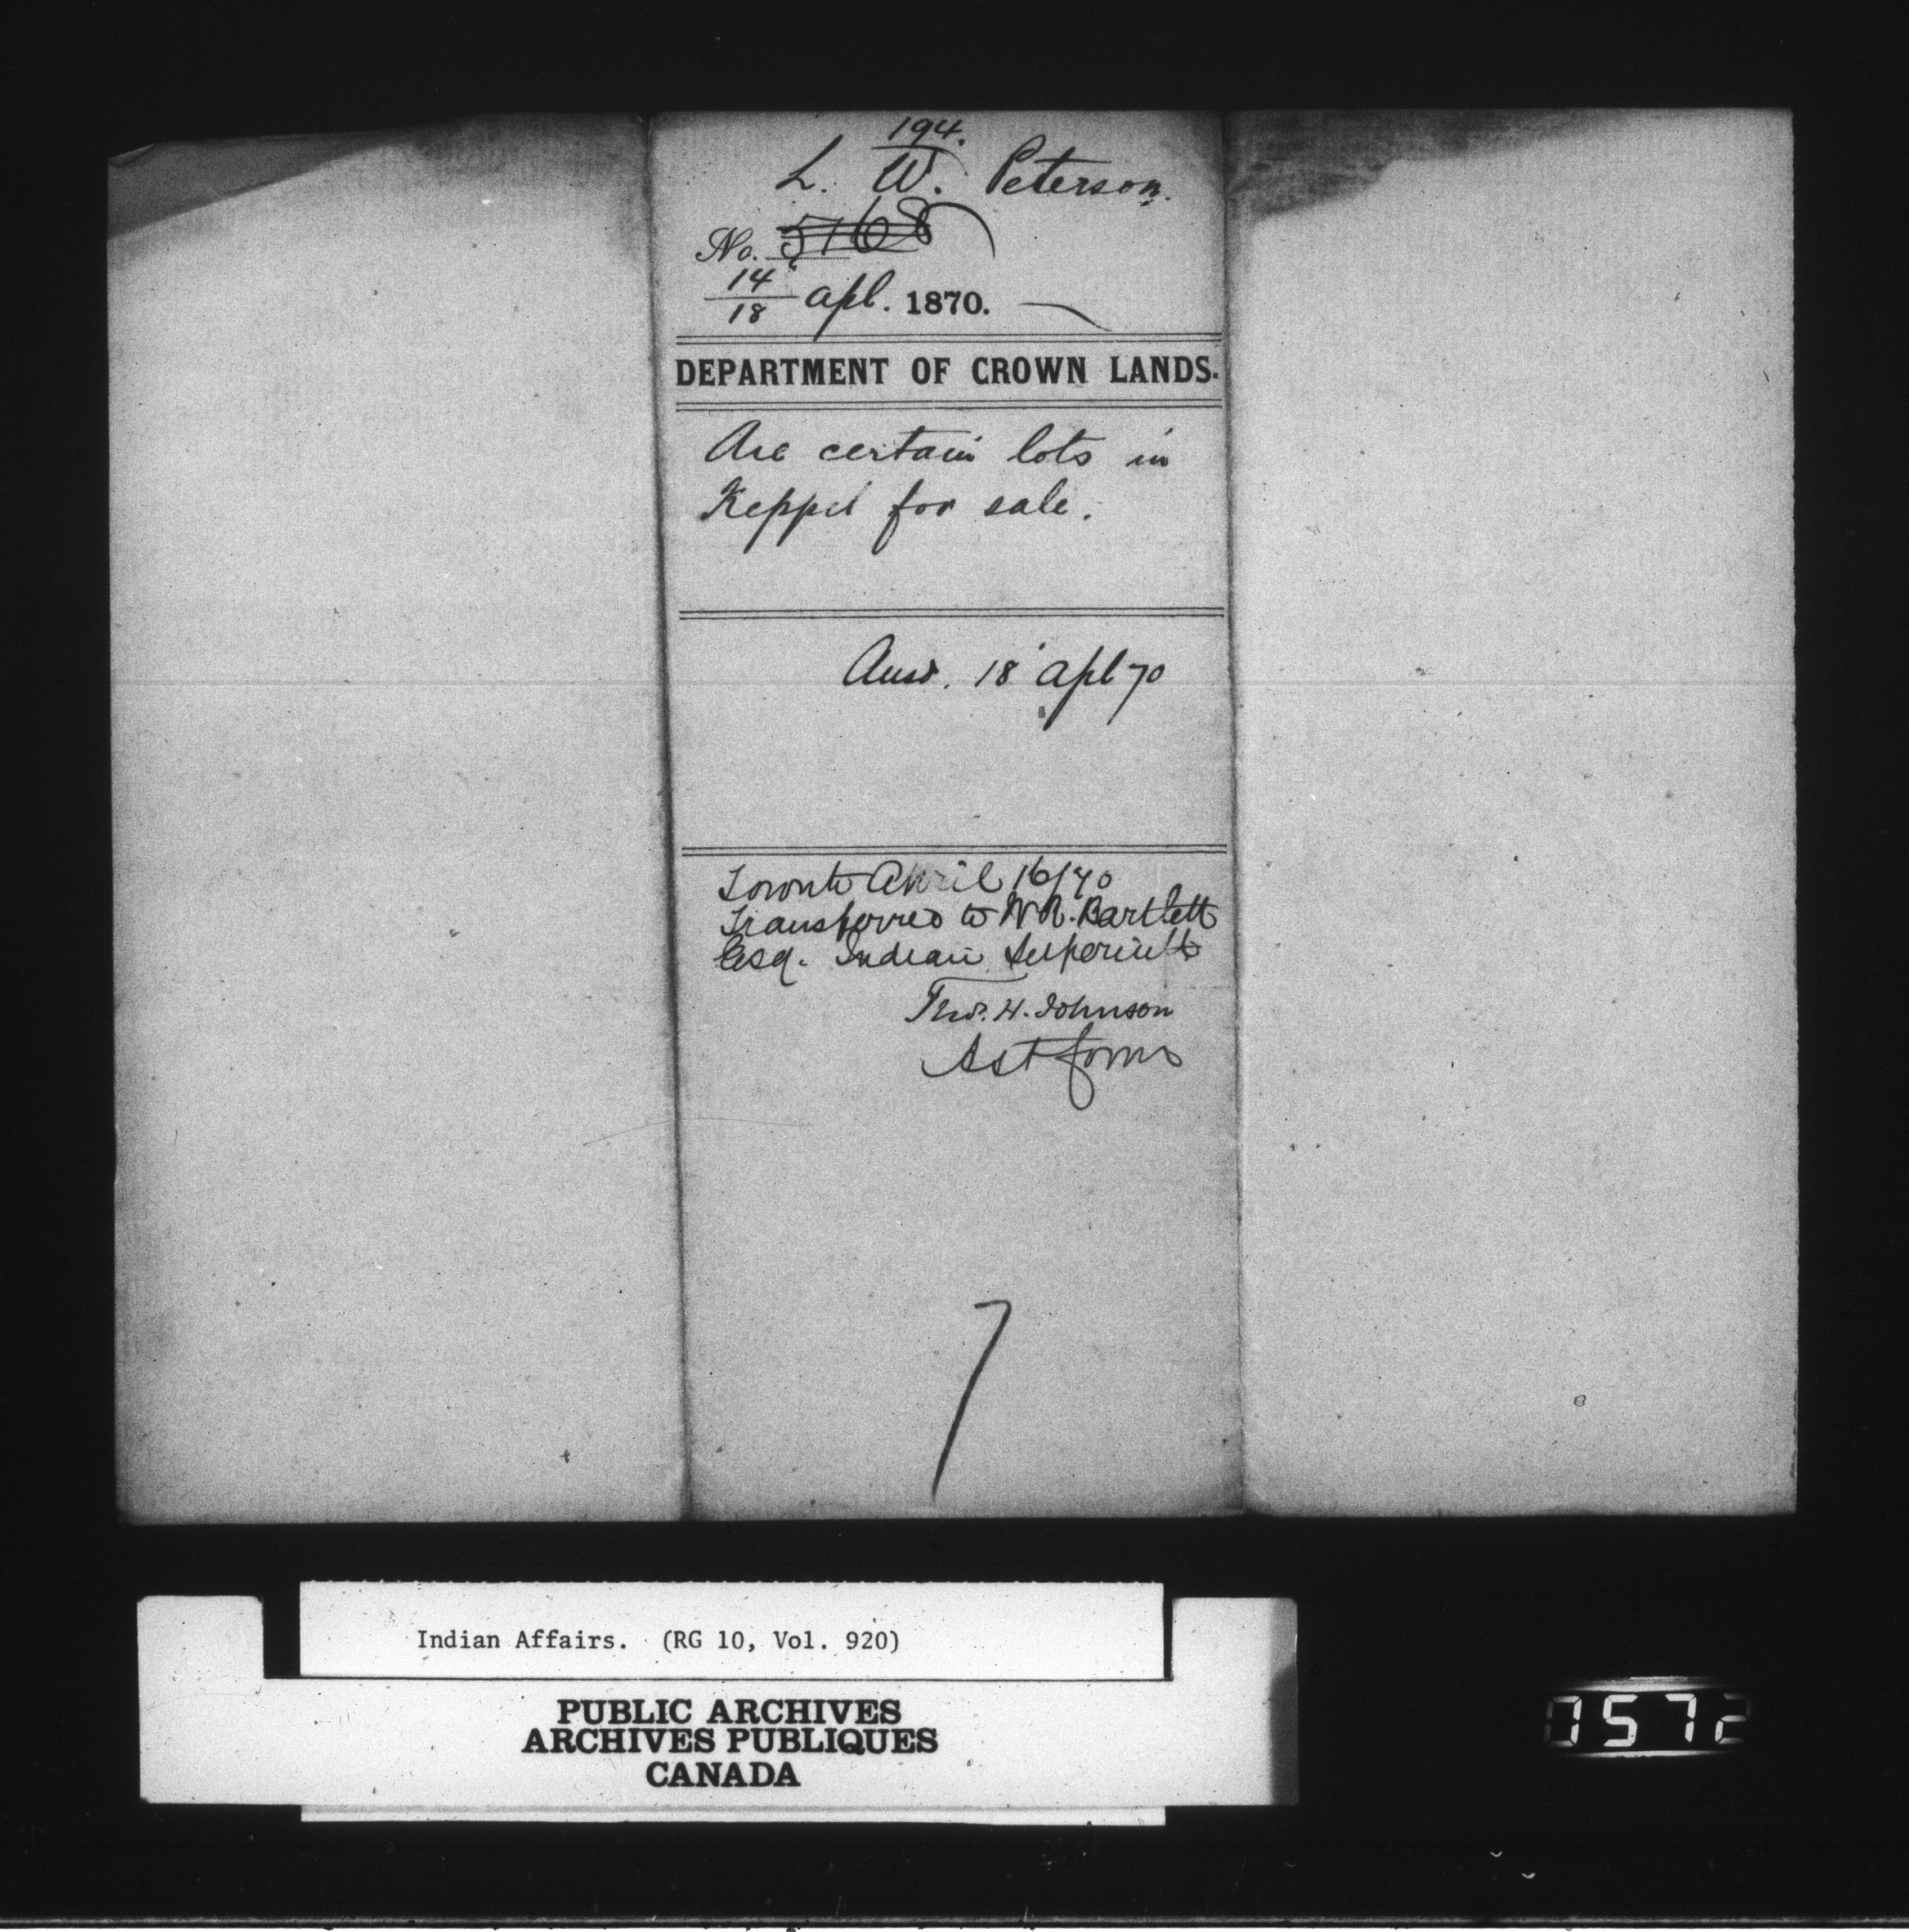 194.
L. W. Peterson.
No. 5168
14
18 apl. 1870.
DEPARTMENT OF CROWN LANDS.
Are certain lots in
Keppel for sale.
Answ. 18 apl 70
Toronto April 16/70
Transferred to W R. Bartlett
Esq. Indian Superintt
Thos. H. Johnson
Ast Coms
7
Indian Affairs. (RG 10, Vol. 920)
PUBLIC ARCHIVES
ARCHIVES PUBLIQUES
CANADA
0572